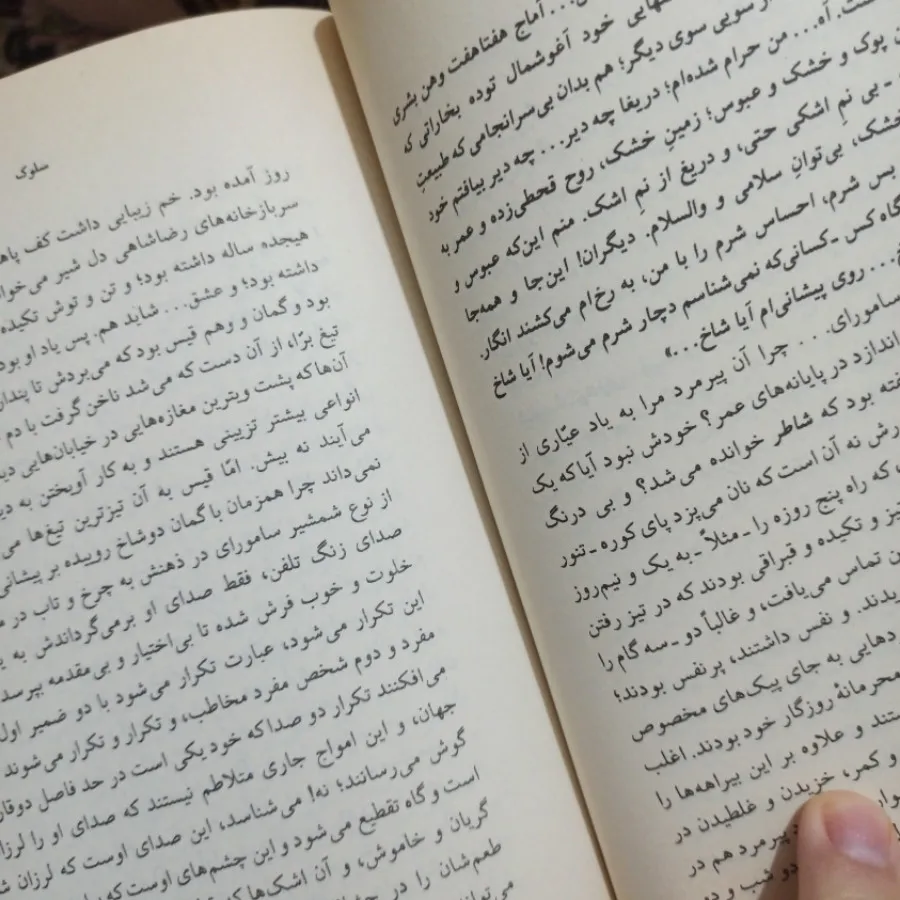 ... آماج هفتاهفت وهن بشری
تنهایی خود آغوشمال توده بخاراتی که
از سویی سوی دیگر؛ هم بدان بی‌سرانجامی که طبیعتِ
است. آه... من حرام شده‌ام؛ دریغا چه دیر... چه دیر بیافتم خود
پوک و خشک و عبوس؛ زمینِ خشک، روح قحطی‌زده و عمر به
ـ بی نمِ اشکی حتی، و دریغ از نمِ اشک. منم این‌که عبوس و
خشک، بی‌توانِ سلامی و والسلام. دیگران! این‌جا و همه‌جا
بس شرم، احساس شرم را با من، به رخ‌ام می‌کشند انگار.
گاه کس ـ کسانی‌که نمی‌شناسم دچار شرم می‌شوم! آیا شاخ
... روی پیشانی‌ام آیا شاخ...»
سامورای... چرا آن پیرمرد مرا به یاد عیّاری از
اندازد در پایانه‌های عمر؟ خودش نبود آیا که یک
بود که شاطر خوانده می‌شد؟ و بی درنگ
نه آن است که نان می‌پزد پای کوره ـ تنور
که راه پنج روزه را ـ مثلاً ـ به یک و نیم‌روز
و تکیده و قبراقی بودند که در تیز رفتن
تماس می‌یافت، و غالباً دو ـ سه گام را
و نفس داشتند، پرنفس بودند؛
به جای پیک‌های مخصوص
محرمانهٔ روزگار خود بودند. اغلب
و علاوه بر این بیراهه‌ها را
و کمر، خزیدن و غلطیدن در
پیرمرد هم در
دو شب و دو
سلوک
روز آمده بود. خم زیبایی داشت کف
سربازخانه‌های رضاشاهی دل شیر
هیجده ساله داشته بود؛ و تن و توش تکیده
داشته بود؛ و عشق... شاید هم. پس یاد او بود
بود و گمان و وهم قیس بود که می‌بردش تا
تیغ برّا، از آن دست که می‌شد ناخن گرفت با دم
آن‌ها که پشت ویترین مغازه‌هایی در خیابان‌هایی
انواعی بیشتر تزیینی هستند و به کار آویختن به
می‌آیند نه بیش. امّا قیس به آن تیزترین تیغ‌ها
نمی‌داند چرا همزمان با گمان دوشاخ روییده بر پیشانی
از نوع شمشیر سامورای در ذهنش به چرخ و تاب در
صدای زنگ تلفن، فقط صدای او برمی‌گرداندش به
خلوت و خوب فرش شده تا بی‌اختیار و بی‌مقدمه بپرسد
این تکرار می‌شود، عبارت تکرار می‌شود با دو ضمیر اول
مفرد و دوم شخص مفرد مخاطب، و تکرار و تکرار می‌شوند
می‌افکنند تکرار دو صدا که خود یکی است در حد فاصل دو
جهان، و این امواج جاری متلاطم نیستند که صدای او را
گوش می‌رسانند؛ نه! می‌شناسد، این صدای اوست که لرزان
است و گاه تقطیع می‌شود و این چشم‌های اوست که
گریان و خاموش، و آن اشک‌ها که
طعم‌شان را در
می‌توانند